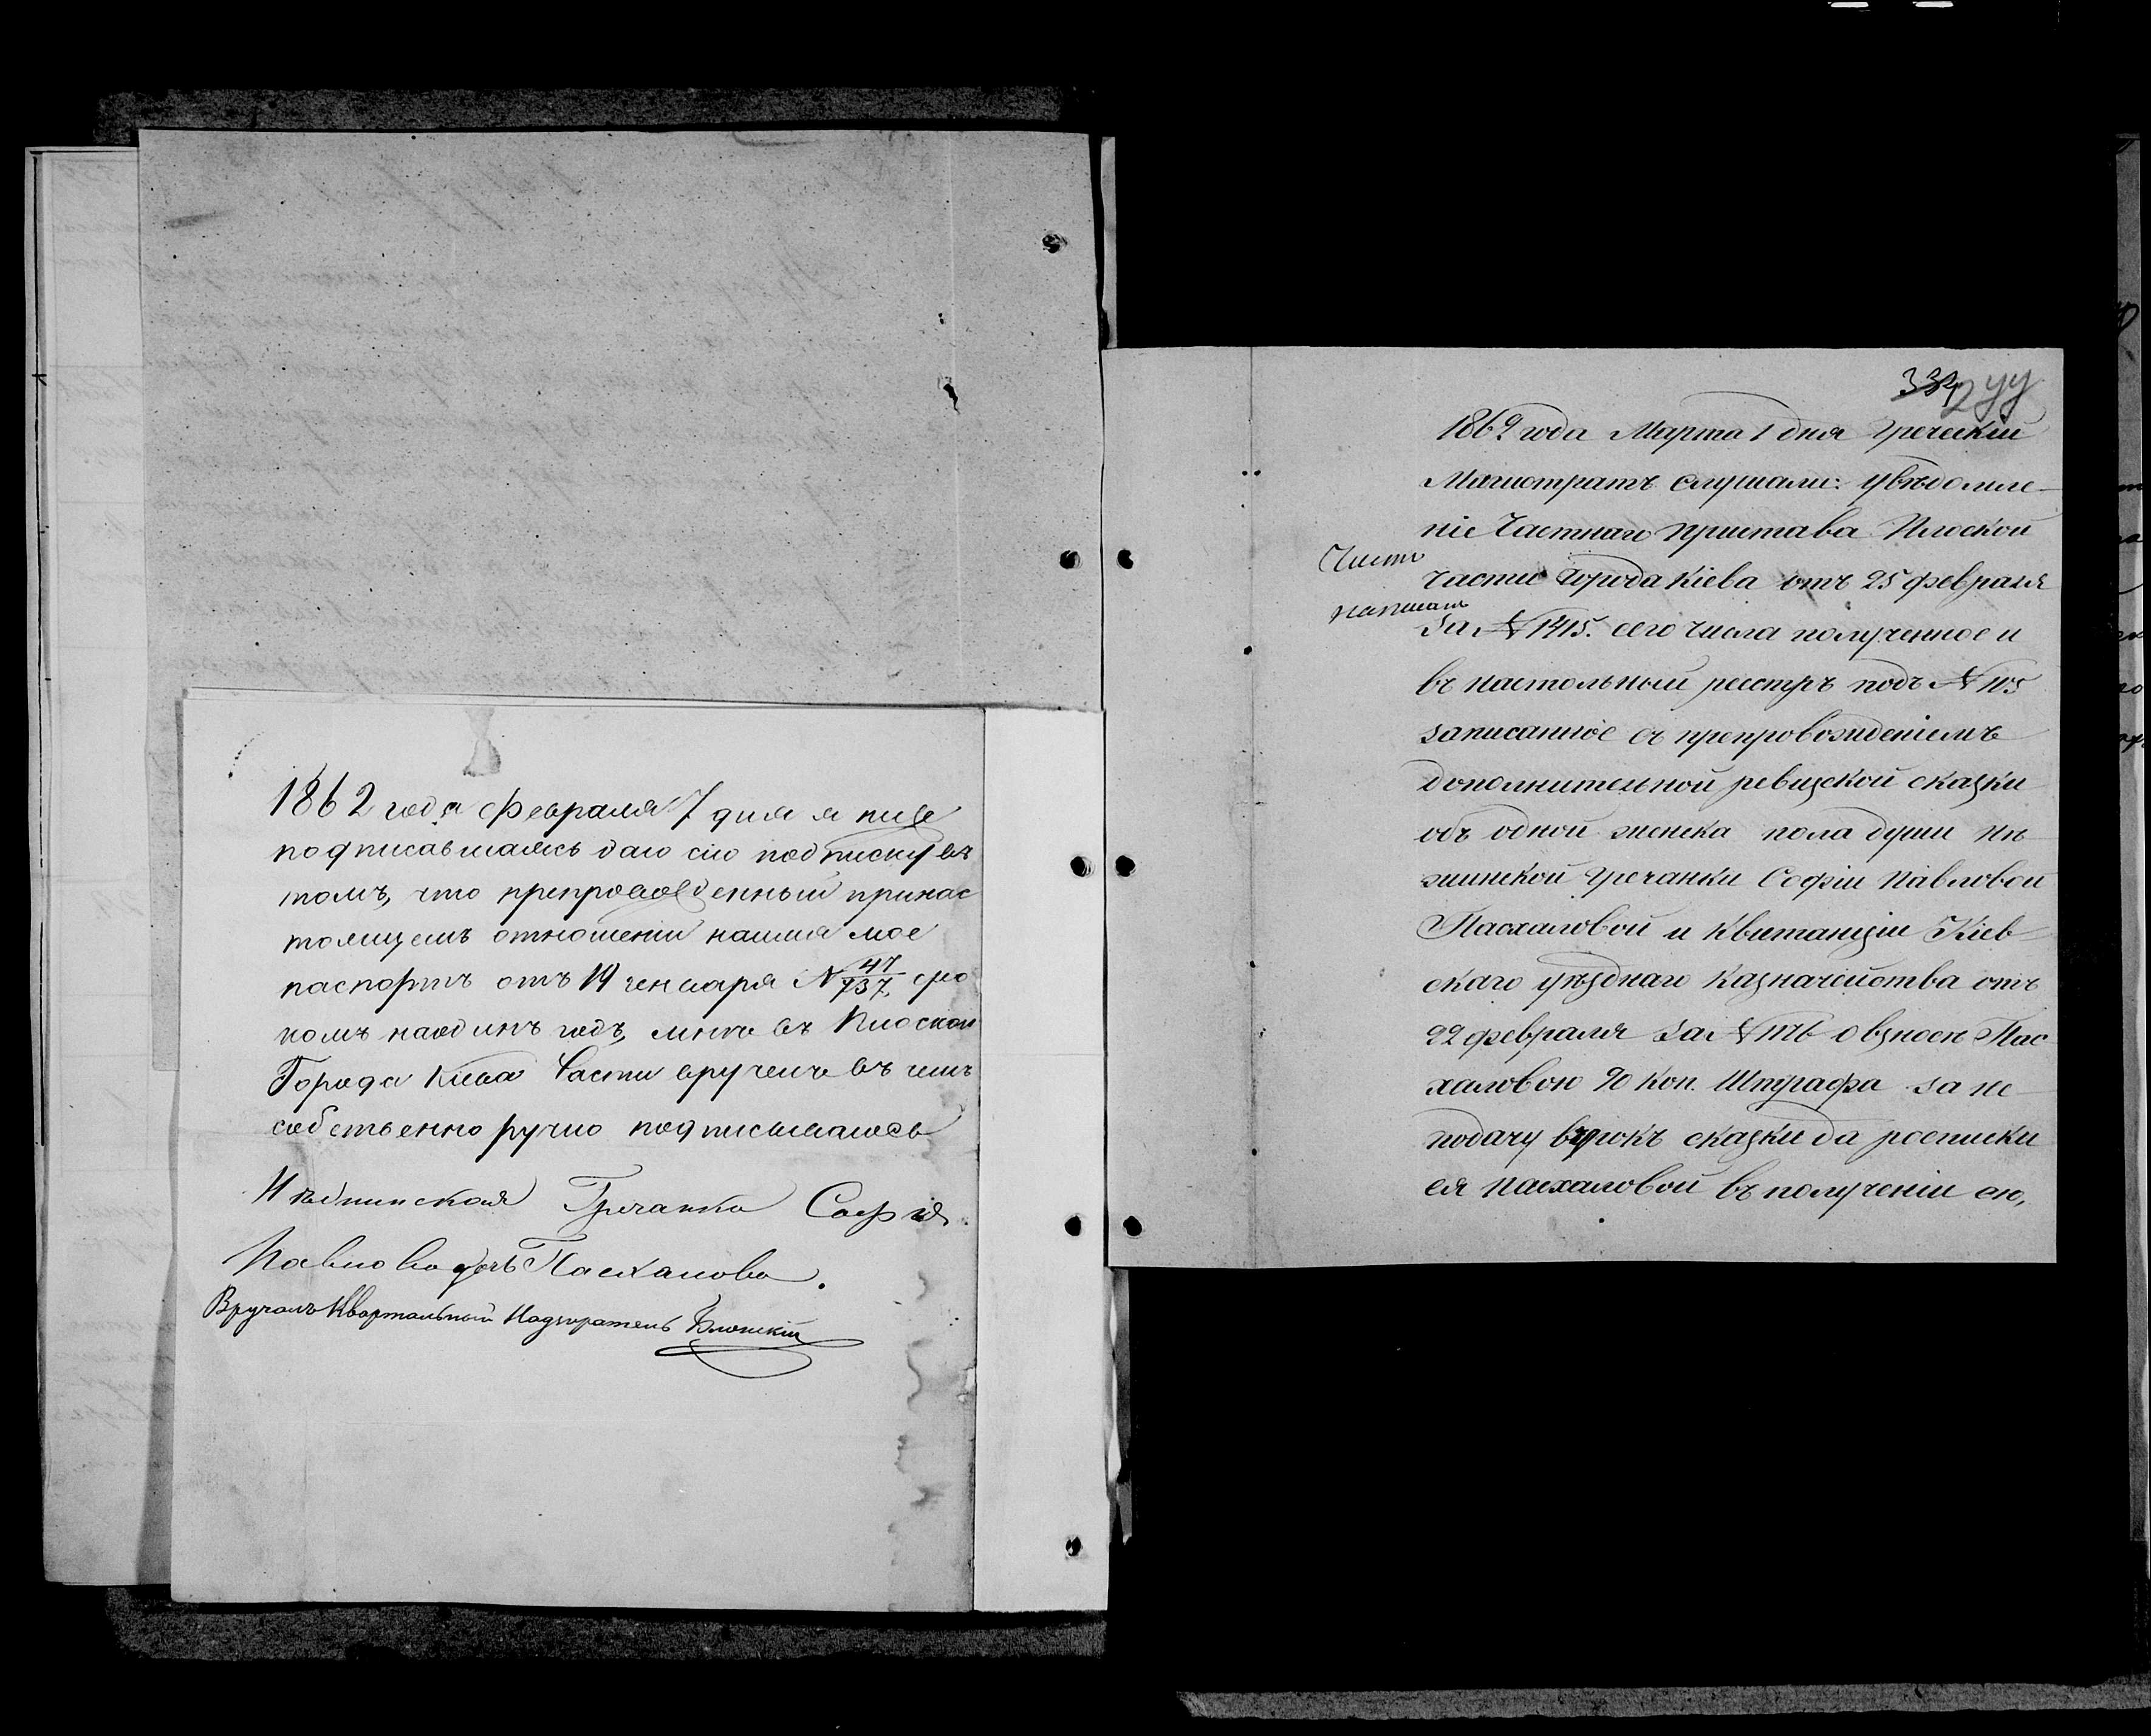 1862 года Февраля 7 дня я ниже
подписавшаяся даю сію подписку въ
томъ, что препровожденный принас
тоящемъ отношеніи на имя мое
паспортъ отъ 19 генваря № 47/737, сро
комъ наодинъ годъ, мнѣ въ Плоской
Города Кіева Части врученъ въ чемъ
собственно ручно подписываюсь
Нѣжинская Гречанка Софія
Павлова дочь Пасхалова.
Вручалъ Квартальный Надзиратель Блонскій
334
1862 года Марта 1 дня Греческій
Магистратъ слушали: увѣдомле-
ніе Частнаго Пристава Плоской
части Города Кіева отъ 25 февраля
за № 1415. сего числа полученное и
въ настольный реестръ подъ № 105
записанное съ препровожденіемъ
дополнительной ревизской сказки
объ одной женска пола души Нѣ-
жинской Гречанки Софіи Павловой
Пасхаловой и Квитанціи Кіев-
скаго уѣзднаго Казначейства отъ
22 февраля за № о взносѣ Пас
халовою 90 коп. Штрафа за не
подачу въ срокъ сказки да росписки
ея Пасхаловой въ полученіи ею,
Чисто
написать